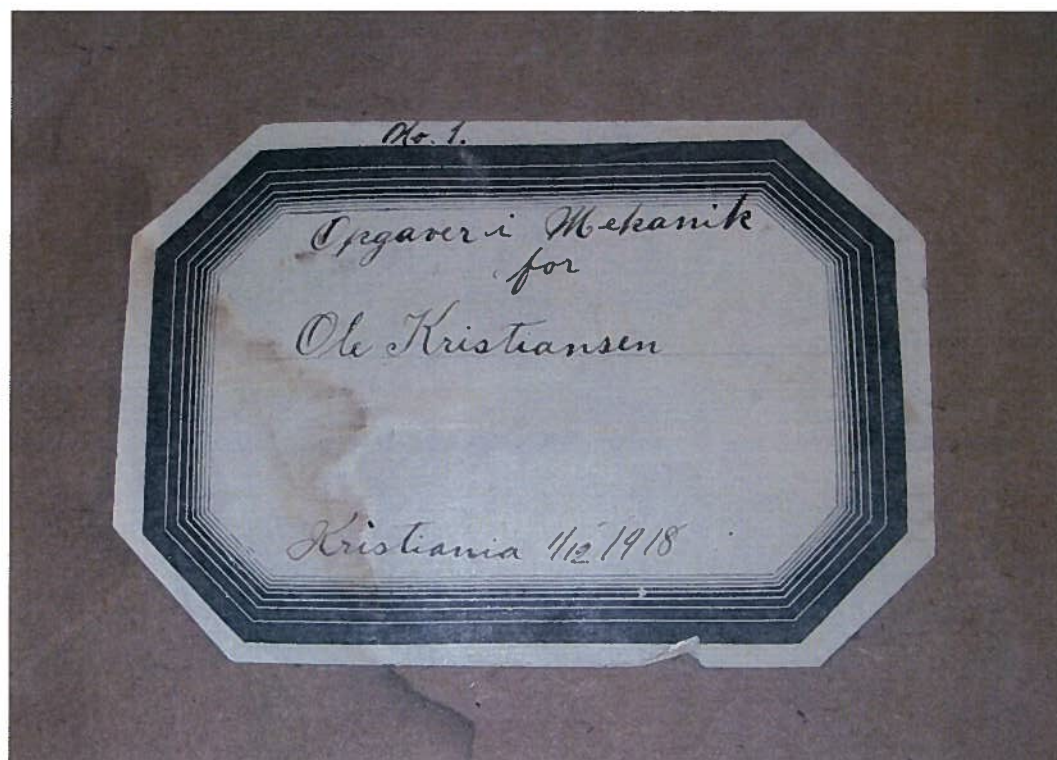 No. 1.
Opgaver i Mekanik
for
Ole Kristiansen
Kristiania 1/12 1918